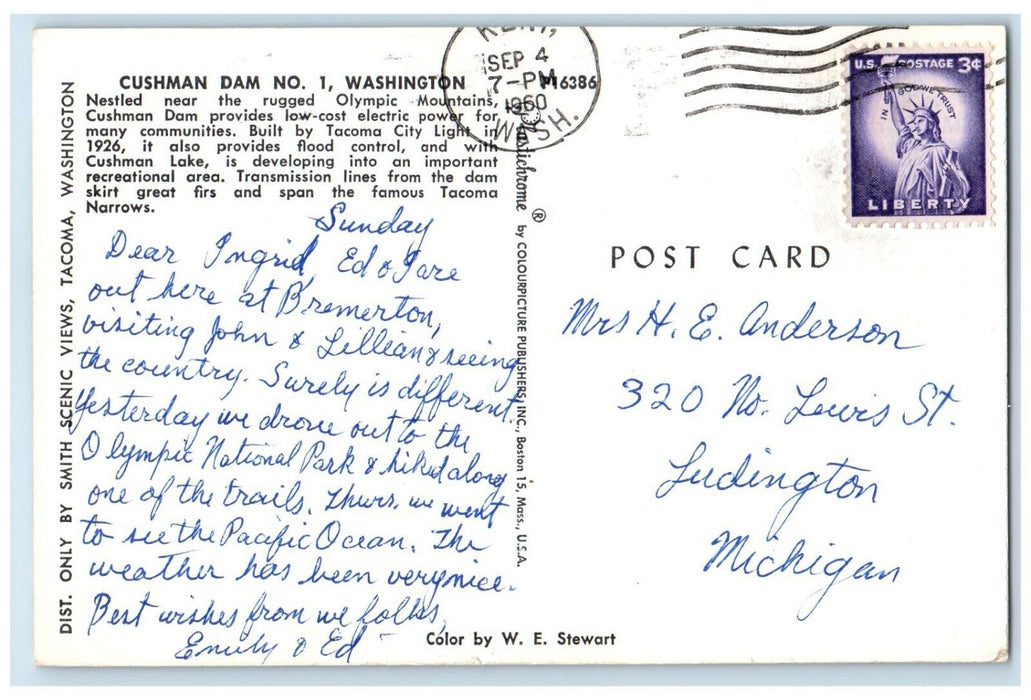 KENT,
SEP 4
7-PM
1960
WASH.
U.S. POSTAGE 3¢
IN GOD WE TRUST
LIBERTY
CUSHMAN DAM NO. 1, WASHINGTON P16386
Nestled near the rugged Olympic Mountains,
Cushman Dam provides low-cost electric power for
many communities. Built by Tacoma City Light in
1926, it also provides flood control, and with
Cushman Lake, is developing into an important
recreational area. Transmission lines from the dam
skirt great firs and span the famous Tacoma
Narrows.
DIST. ONLY BY SMITH SCENIC VIEWS, TACOMA, WASHINGTON
Sunday
Dear Ingrid, Ed & I are
out here at Bremerton,
visiting John & Lillian & seeing
the country. Surely is different.
Yesterday we drove out to the
Olympic National Park & hiked along
one of the trails. Thurs. we went
to see the Pacific Ocean. The
weather has been very nice.
Best wishes from we folks,
Emily & Ed
Plastichrome ® by COLOURPICTURE PUBLISHERS, INC., Boston 15, Mass., U.S.A.
POST CARD
Mrs H. E. Anderson
320 No. Lewis St.
Ludington
Michigan
Color by W. E. Stewart